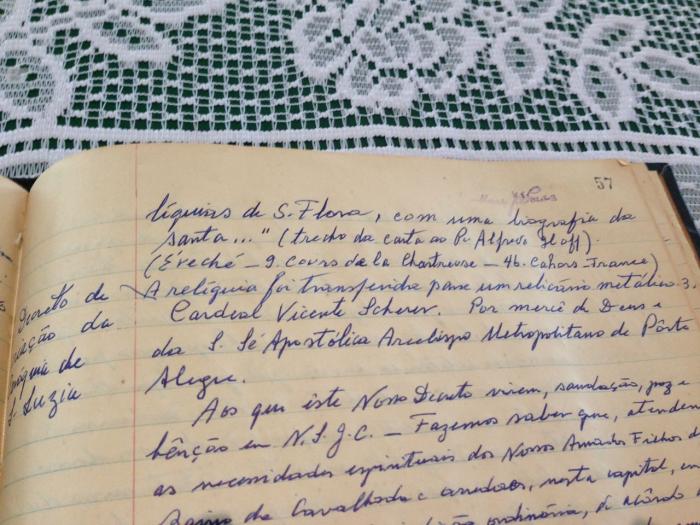 57
líquias de S. Flora, com uma biografia da
santa..." (trecho da carta ao Pe. Alfredo Hoff).
(Évêché - 9. Cours de la Chartreuse - 46. Cahors - France)
A relíquia foi transferida para um relicário metálico.
Cardeal Vicente Scherer. Por mercê de Deus e
da S. Sé Apostólica Arcebispo Metropolitano de Pôrto
Alegre.
Aos que êste Nosso Decreto virem, saudação, paz e
bênção em N.S.J.C. - Fazemos saber que, atenden
as necessidades espirituais dos Nossos Amados Filhos d
Bairro da Cavalhada e arredores, nesta capital,
ordinária, de acôrdo
Decreto de
ação da
S. Luzia